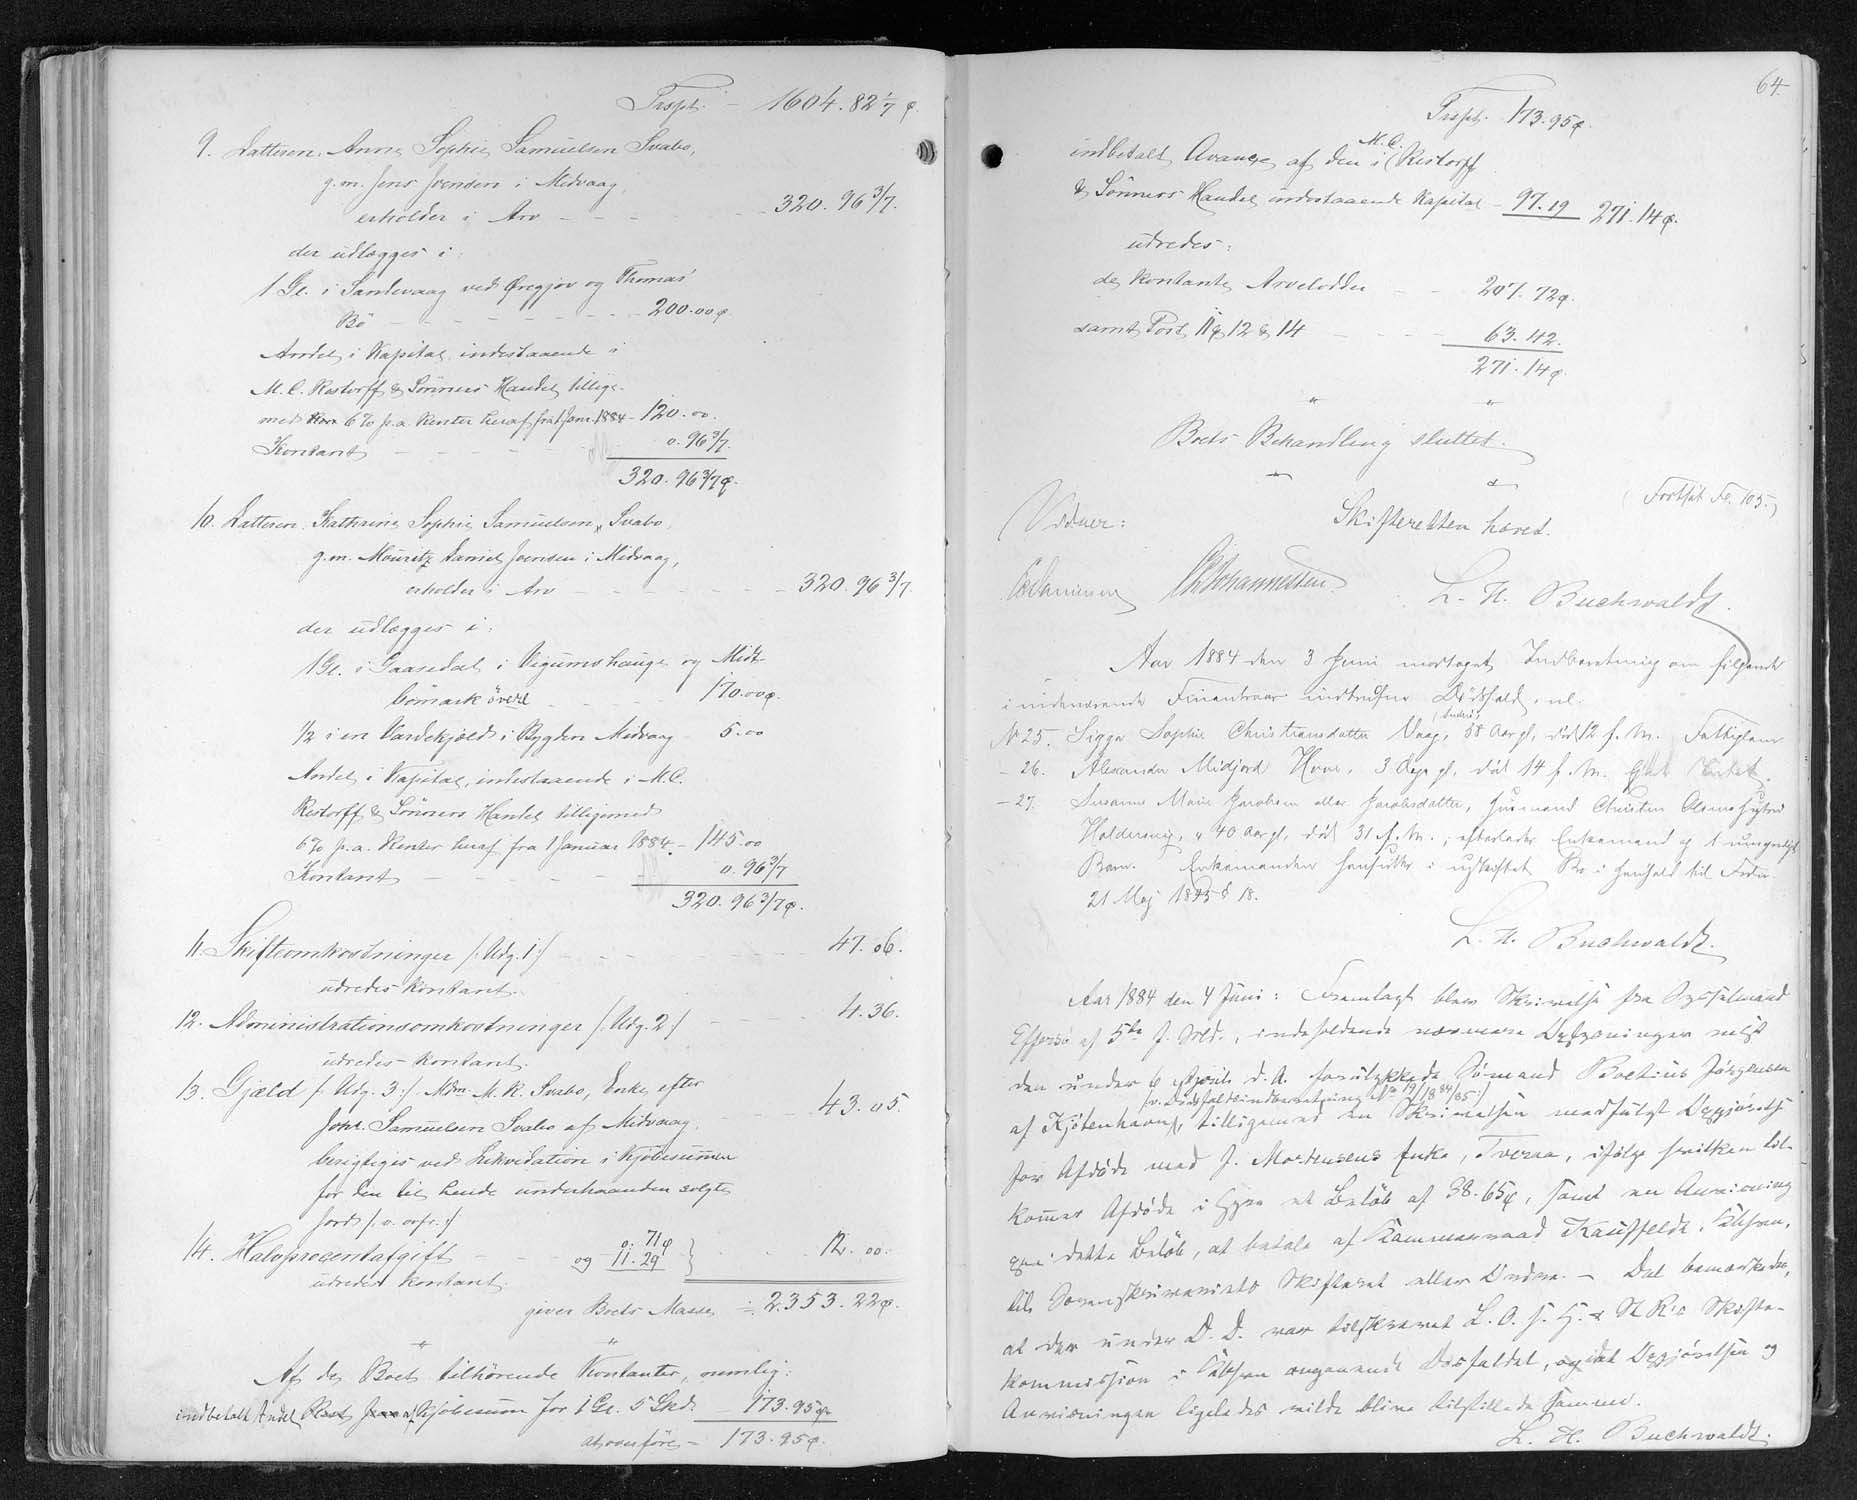 Trspt. – 1604. 82 1/7 ø.
9. Datteren Anna Sophie Samuelsen Svabo,
g. m. Jens Joensen i Midvaag,
erholder i Arv – – – – 320. 96 3/7.
der udlægges i:
1 Gl. i Sandevaag ved Øregjov og Thomas'
Bö – – – – – 200.00 ø.
Andel i Kapital, indestaaende i
M. C. Restorff & Sönners Handel tillige-
med 6% p.a. Renter heraf fra 1 Janr. 1884 – 120.00.
Kontant – – – – 0.96 3/7.
320. 96 3/7 ø.
10. Datteren Kathrine Sophie Samuelsen Svabo,
g. m. Mouritz Daniel Joensen i Midvaag,
erholder i Arv – – – – 320. 96 3/7.
der udlægges i:
1 Gl. i Gaasedal i Vigumshauge og Midt-
bömark övere – – – 170.00 ø.
1/2 i en Vardekjæld i Bygden Midvaag 5.00
Andel i Kapital, indestaaende i M. C.
Restorff & Sönners Handel tilligemed
6% p.a. Renter heraf fra 1 Januar 1884 – 145.00
Kontant – – – – 0.96 3/7
320. 96 3/7 ø.
11. Skifteomkostninger /: Udg. 1 :/ – – – 47. 06.
udredes kontant.
12. Administrationsomkostninger /: Udg. 2 :/ – – 4. 36.
udredes kontant.
13. Gjæld /: Udg. 3 :/ Mdm M. K. Svabo, Enke efter
Johs. Samuelsen Svabo af Midvaag. – – 43. 05.
berigtiges ved Likvidation i Kjöbesummen
for den til hende underhaanden solgte
Jord /: v. ovfr. :/
14. Halvprocentafgift – – 0. 71 ø
og 11. 29 } – – 12. 00.
udredes kontant.
giver Boets Masse = 2353. 22 ø.
" "
Af de Boet tilhörende Kontanter, nemlig:
indbetalt Andel af Kjöbesum for 1 Gl. 5 Skd. 173. 95 ø.
at overföre – 173. 95 ø.
64.
Trspt. 173. 95 ø.
indbetalt Avance af den i M. C. Restorff
& Sönners Handel indestaaende Kapital – 97. 19 271. 14 ø.
udredes:
de kontante Arvelodder – – 207. 72 ø.
samt Post 11 & 12 & 14 – – – 63. 42.
271. 14 ø.
" "
Boets Behandling sluttet.
(Fortsat Fo. 105.)
Vidner: Skifteretten hævet.
Johannessen L. H. Buchwaldt.
Aar 1884 den 3 Juni modtaget Indberetning om fölgende
i indeværende Finantsaar indtrufne Dödsfald, nl.
No 25. Sigga Sophie Christiansdatter Vaag, 88 Aar gl., död 12 f. M. Fattiglem
- 26. Alexander Midjord Hove, 3 Dage gl., död 14 f. M. Ejet Intet.
- 27. Susanne Marie Jacobsen eller Jacobsdatter, Husmand Christen Olsens Hustru
Haldersvig, 40 Aar gl., död 31 f. M.; efterlader Enkemand og 1 umyndigt
Barn. Enkemanden hensidder i uskiftet Bo i Henhold til Frdn.
21 Maj 1845 § 18.
L. H. Buchwaldt.
Aar 1884 den 4 Juni: Fremlagt blev Skrivelse fra Sysselmand
Effersö af 5te f. Md., indeholdende nærmere Oplysninger
den under 6 April d. A. forulykkede Sömand Boetius Jörgensen
/: v. Dödsfaldsindberetning No 19/1884/85 :/
af Kjötenhavn, tilligemed en Skrivelsen medfulgt Opgjörelse
for Afdöde med J. Mortensens Enke, Tveraa, ifölge hvilken til-
kommer Afdöde i Hyre et Belöb af 38. 65 ø, samt en Anvisning
paa dette Belöb, at betale af Kammerraad Kauffeldt,
til Sorenskriveriets Skifteret eller Ordre. – Det bemærkedes,
at der under D. D. var tilskrevet
kommission i angaaende Dösfaldet, og at Opgjörelsen og
Anvisningen ligeledes vilde blive tilstillede samme.
L. H. Buchwaldt.